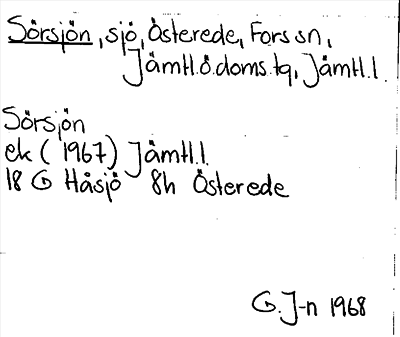 Sörsjön, sjö, Österede, Fors sn,
Jämtl.ö.doms.tg, Jämtl.l.
Sörsjön
ek (1967) Jämtl.l.
18 G Håsjö 8h Österede
G. J-n 1968